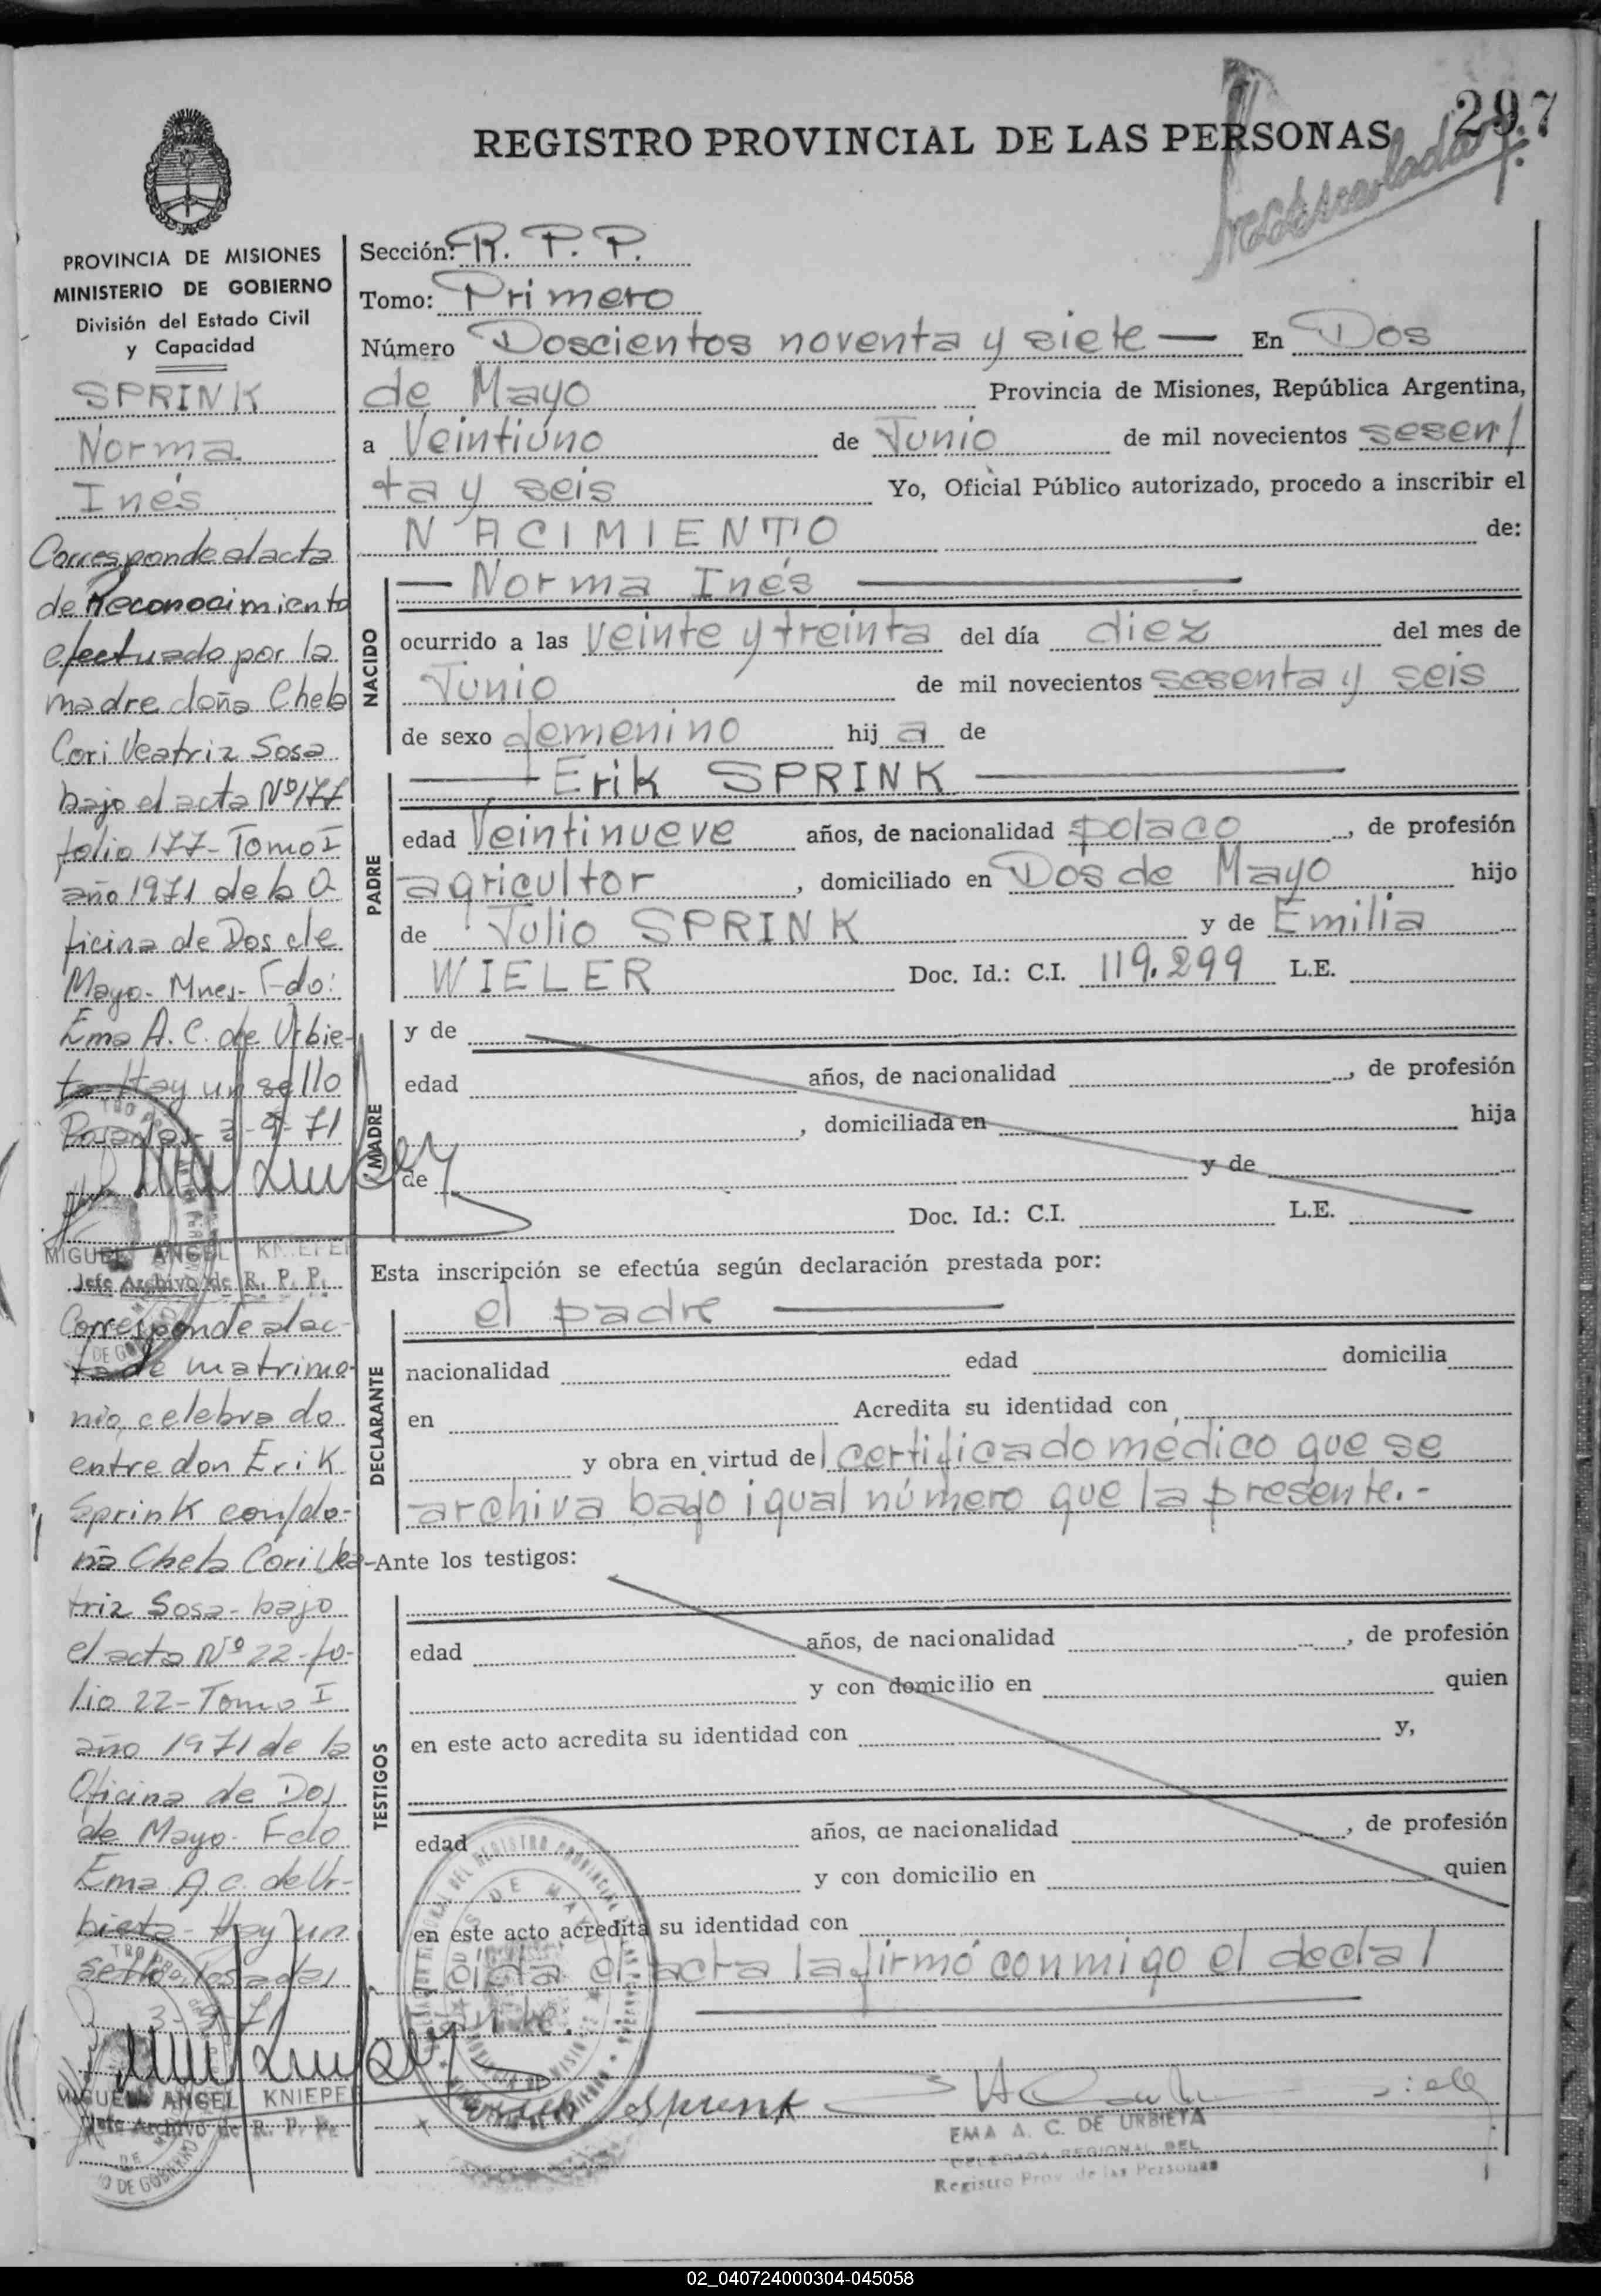 297
REGISTRO PROVINCIAL DE LAS PERSONAS
PROVINCIA DE MISIONES
MINISTERIO DE GOBIERNO
División del Estado Civil
y Capacidad
SPRINK
Norma
Inés
Corresponde al acta
de Reconocimiento
efectuado por la
madre doña Chela
Cori Veatriz Sosa
bajo el acta Nº 177
folio 177- Tomo I
año 1971 de la O
ficina de Dos de
Mayo- Mnes- Fdo:
Ema A. C. de Urbie-
ta- Hay un sello
Posadas- 3-9-71
MIGUEL ANGEL KNIEPER
Jefe Archivo de R. P. P.
Corresponde al ac-
ta de matrimo-
nio celebrado
entre don Erik
Sprink con/do-
ña Chela Cori Vea-
triz Sosa- bajo
el acta Nº 22-fo-
lio 22- Tomo I
año 1971 de la
Oficina de Dos
de Mayo- Fdo
Ema A. C. de Ur-
bieta- Hay un
sello Posadas
3-9-71
MIGUEL ANGEL KNIEPER
Jefe Archivo de R. P. P.
Sección: R. P. P.
Tomo: Primero
Número Doscientos noventa y siete — En Dos
de Mayo Provincia de Misiones, República Argentina,
a Veintiuno de Junio de mil novecientos sesen/
ta y seis Yo, Oficial Público autorizado, procedo a inscribir el
NACIMIENTO de:
NACIDO
— Norma Inés —
ocurrido a las veinte y treinta del día diez del mes de
Junio de mil novecientos sesenta y seis
de sexo femenino hij a de
PADRE
— Erik SPRINK —
edad Veintinueve años, de nacionalidad polaco, de profesión
agricultor, domiciliado en Dos de Mayo hijo
de Julio SPRINK y de Emilia
WIELER Doc. Id.: C.I. 119.299 L.E.
MADRE
y de
edad años, de nacionalidad , de profesión
, domiciliada en hija
de y de
Doc. Id.: C.I. L.E.
Esta inscripción se efectúa según declaración prestada por:
DECLARANTE
el padre —
nacionalidad edad domicilia
en Acredita su identidad con
y obra en virtud del certificado médico que se
archiva bajo igual número que la presente.-
Ante los testigos:
TESTIGOS
edad años, de nacionalidad , de profesión
y con domicilio en quien
en este acto acredita su identidad con y,
edad años, de nacionalidad , de profesión
y con domicilio en quien
en este acto acredita su identidad con
oída el acta la firmó conmigo el decla/
rante.
Erik Sprink
EMA A. C. DE URBIETA
DELEGADA REGIONAL DEL
Registro Prov. de las Personas
02_040724000304-045058